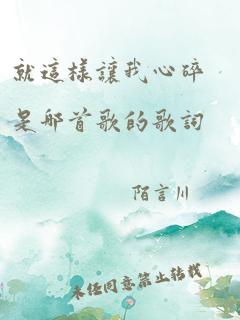 就這樣讓我心碎
是哪首歌的歌詞
陌言川
未经同意禁止转载